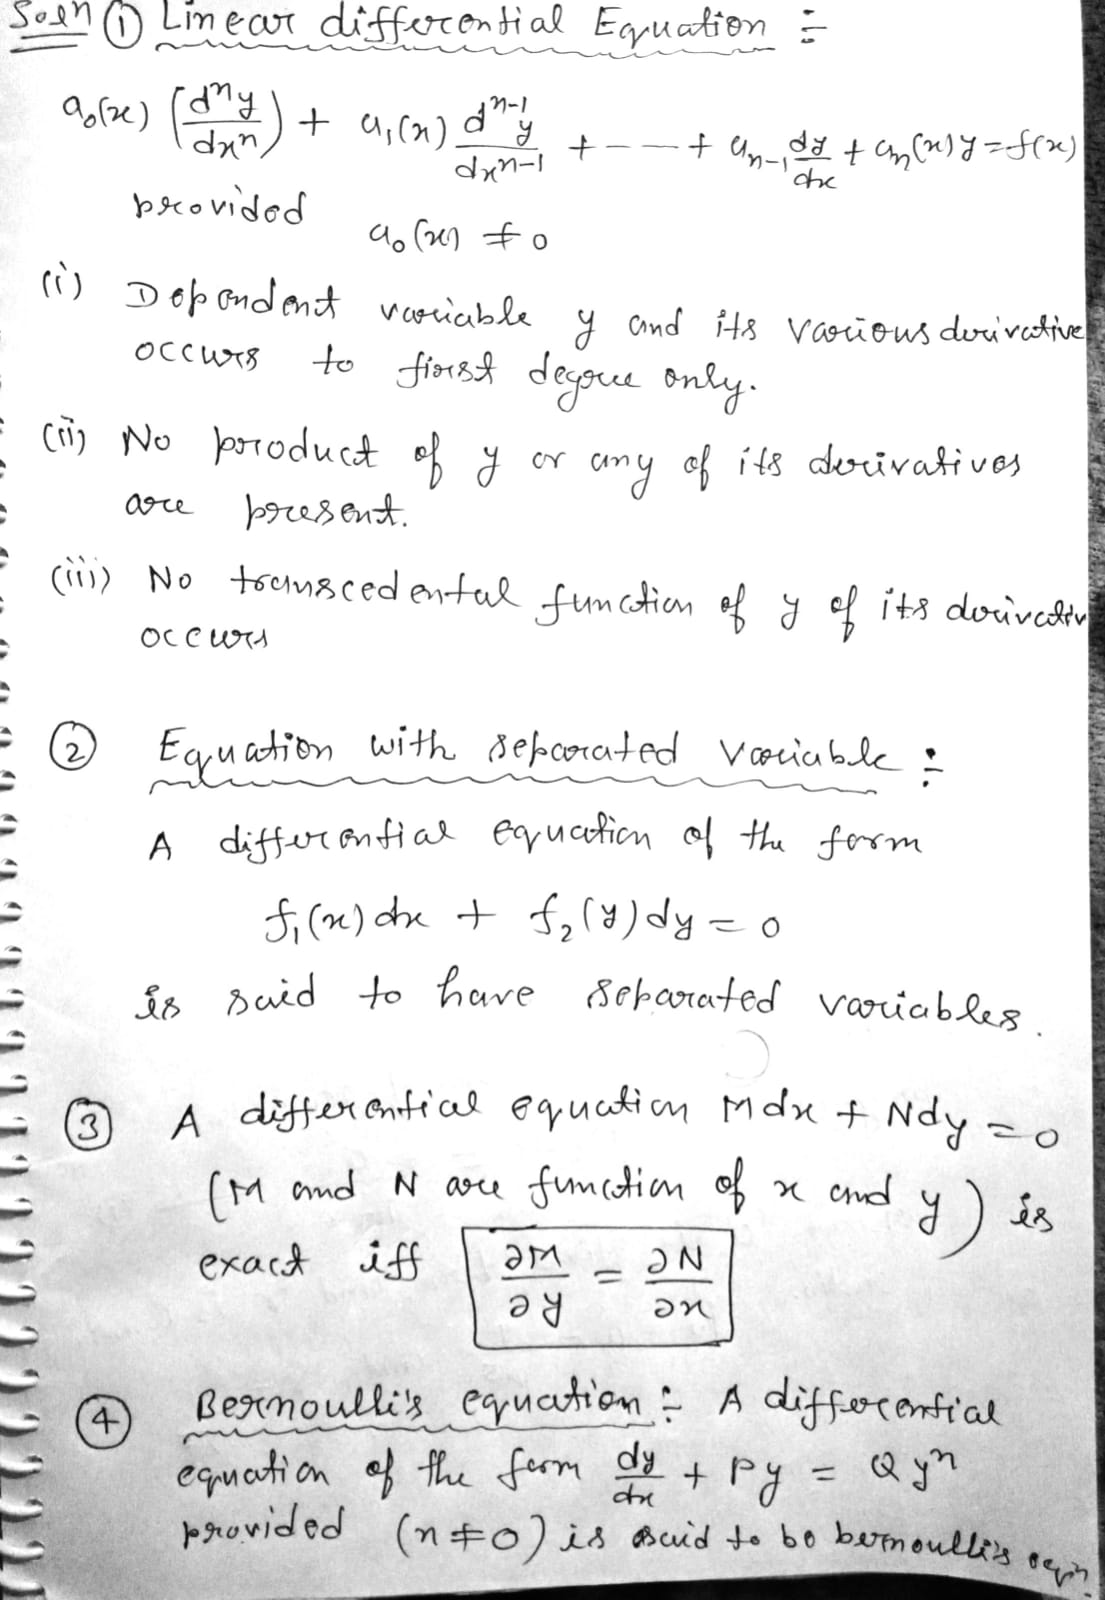 Soln ① Linear differential Equation :-
a₀(x) (dⁿy/dxⁿ) + a₁(x) dⁿ⁻¹y/dxⁿ⁻¹ + - - - + aₙ₋₁ dy/dx + aₙ(x)y = f(x)
provided a₀(x) ≠ 0
(i) Dependent variable y and its various derivative
occurs to first degree only.
(ii) No product of y or any of its derivatives
are present.
(iii) No transcedental function of y of its derivativ
occurs
② Equation with separated variable :-
A differential equation of the form
f₁(x) dx + f₂(y) dy = 0
is said to have separated variables.
③ A differential equation Mdx + Ndy = 0
(M and N are function of x and y) is
exact iff ∂M/∂y = ∂N/∂x
④ Bernoulli's equation :- A differential
equation of the form dy/dx + Py = Qyⁿ
provided (n ≠ 0) is said to be bernoulli's eqn.